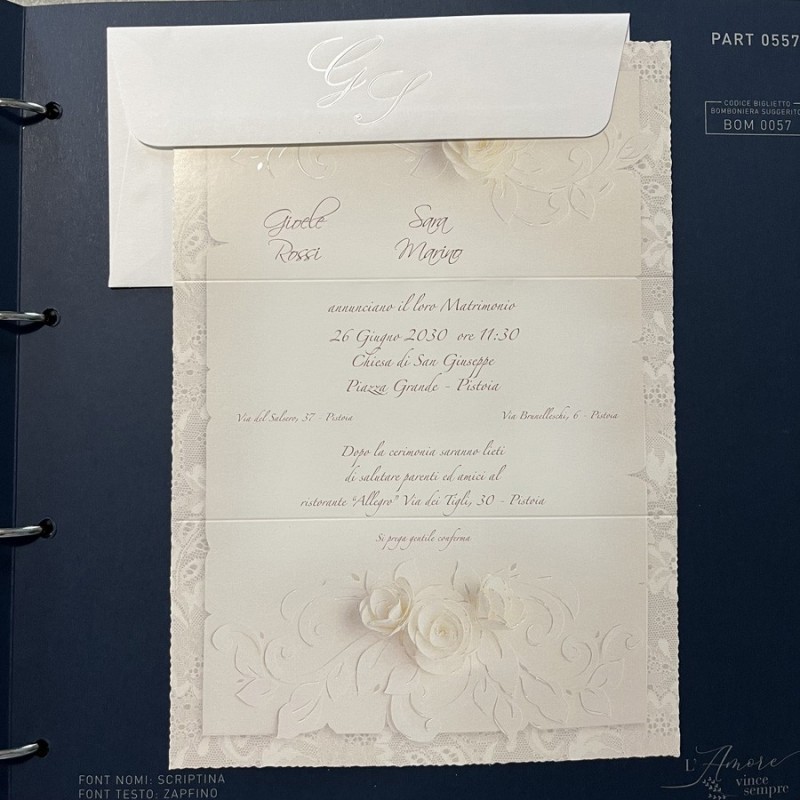 PART 0557
CODICE BIGLIETTO
BOMBONIERA SUGGERITO
BOM 0057
G S
Gioele Sara
Rossi Marino
annunciano il loro Matrimonio
26 Giugno 2030 ore 11:30
Chiesa di San Giuseppe
Piazza Grande - Pistoia
Via del Salvero, 37 - Pistoia Via Brunelleschi, 6 - Pistoia
Dopo la cerimonia saranno lieti
di salutare parenti ed amici al
ristorante "Allegro" Via dei Tigli, 30 - Pistoia
Si prega gentile conferma
FONT NOMI: SCRIPTINA
FONT TESTO: ZAPFINO
L'Amore
vince
sempre